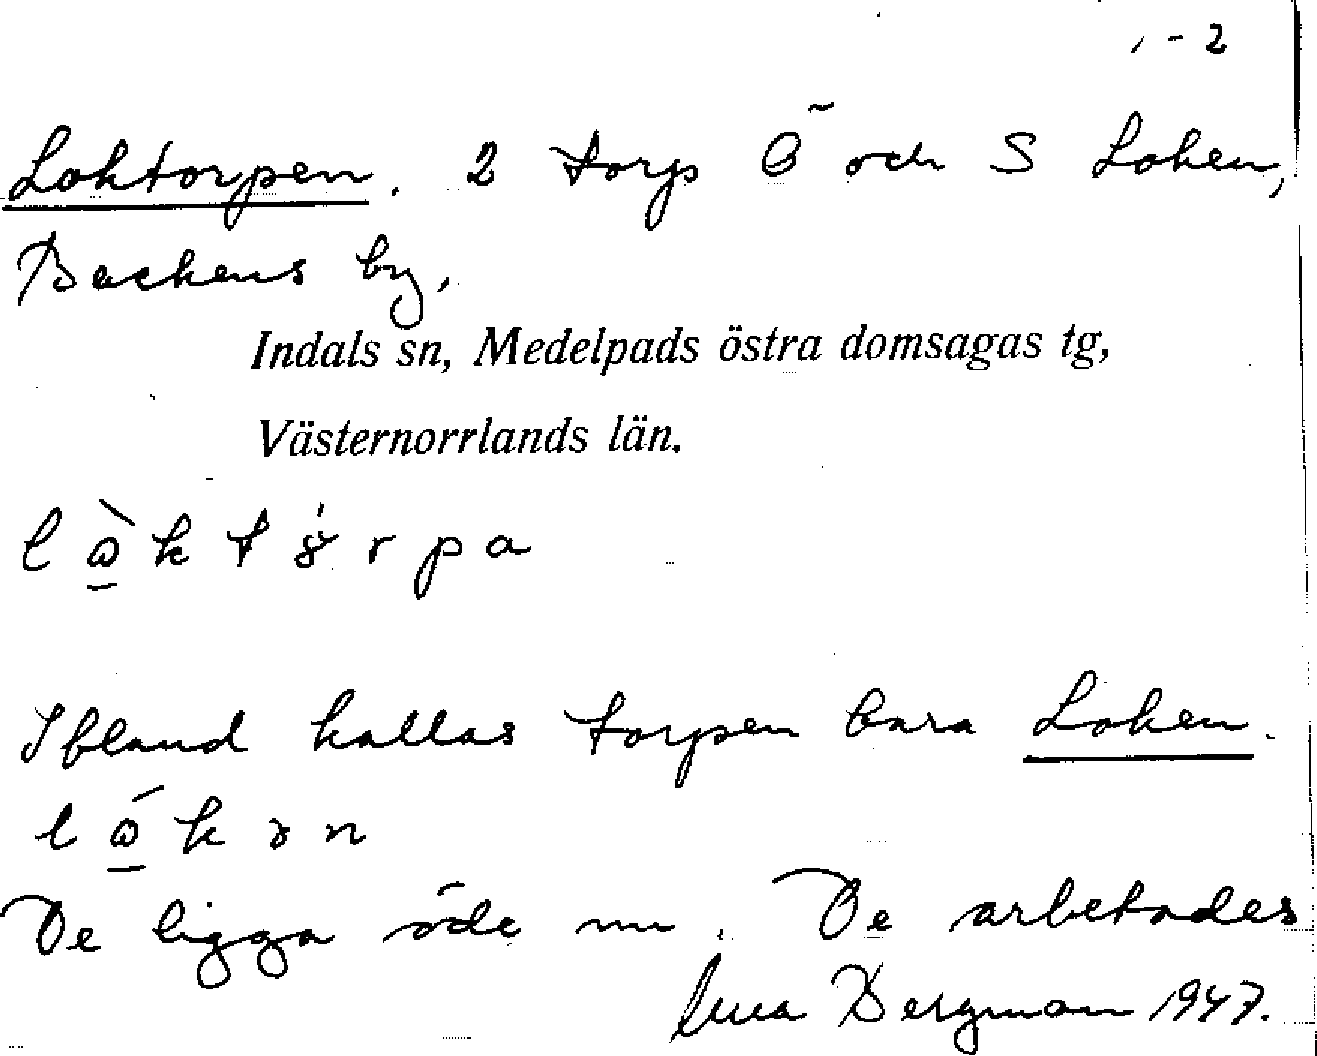 1-2
Loktorpen. 2 torp Ö och S Loken,
Backens by.
Indals sn, Medelpads östra domsagas tg,
Västernorrlands län.
Ibland kallas torpen bara Loken.
De ligga öde nu. De arbetades
Bergman 1947.